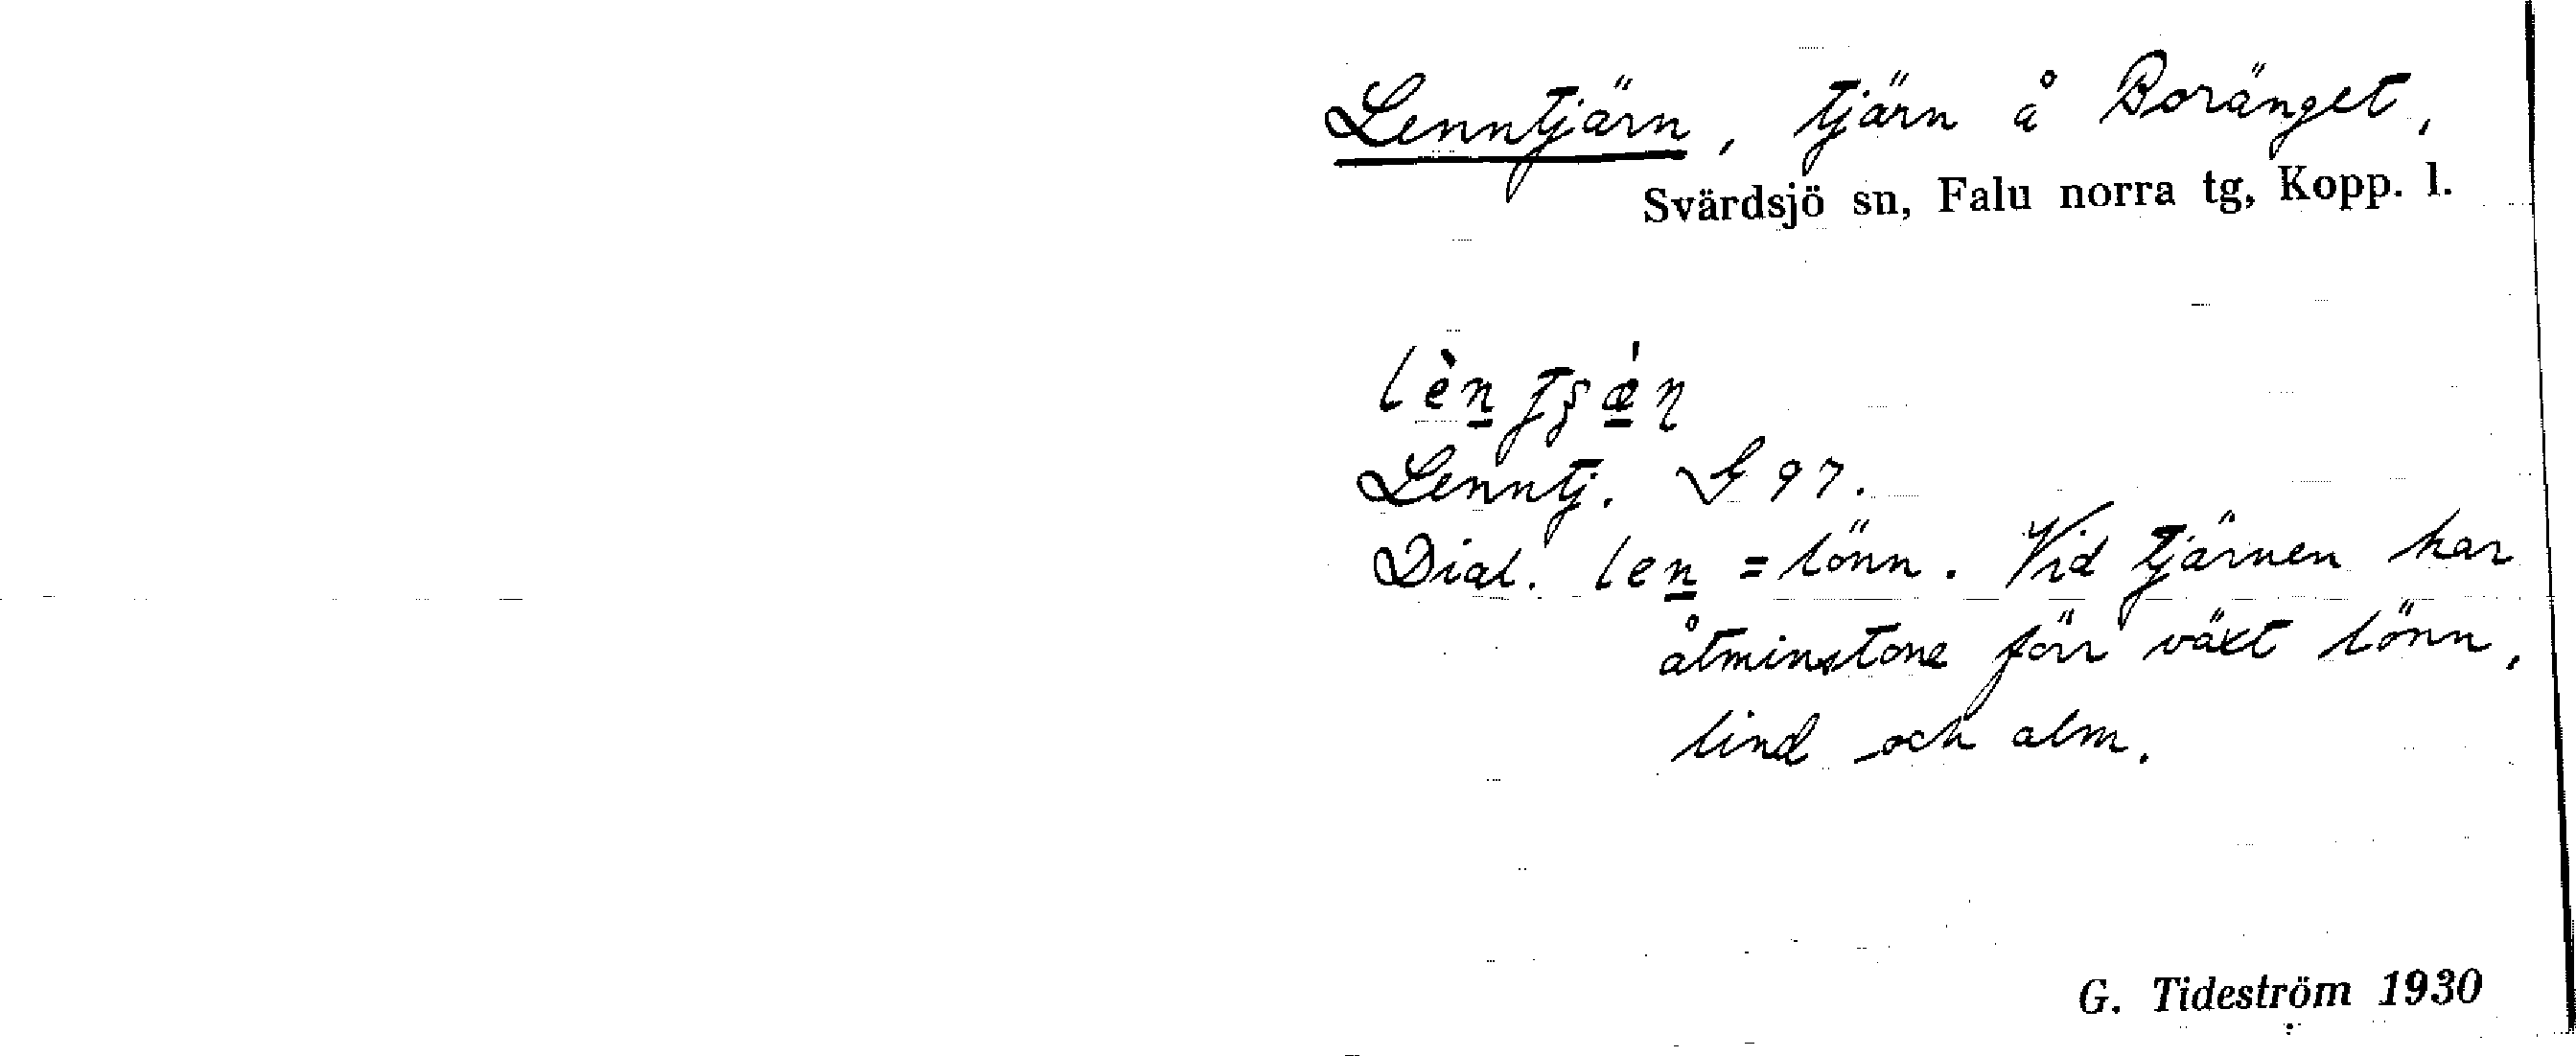 Lenntjärn, tjärn å Boränget,
Svärdsjö sn, Falu norra tg, Kopp. l.
Lenntj. G 97.
Dial. len = lönn. Vid tjärnen har
åtminstone förr växt lönn,
lind och alm.
G. Tideström 1930